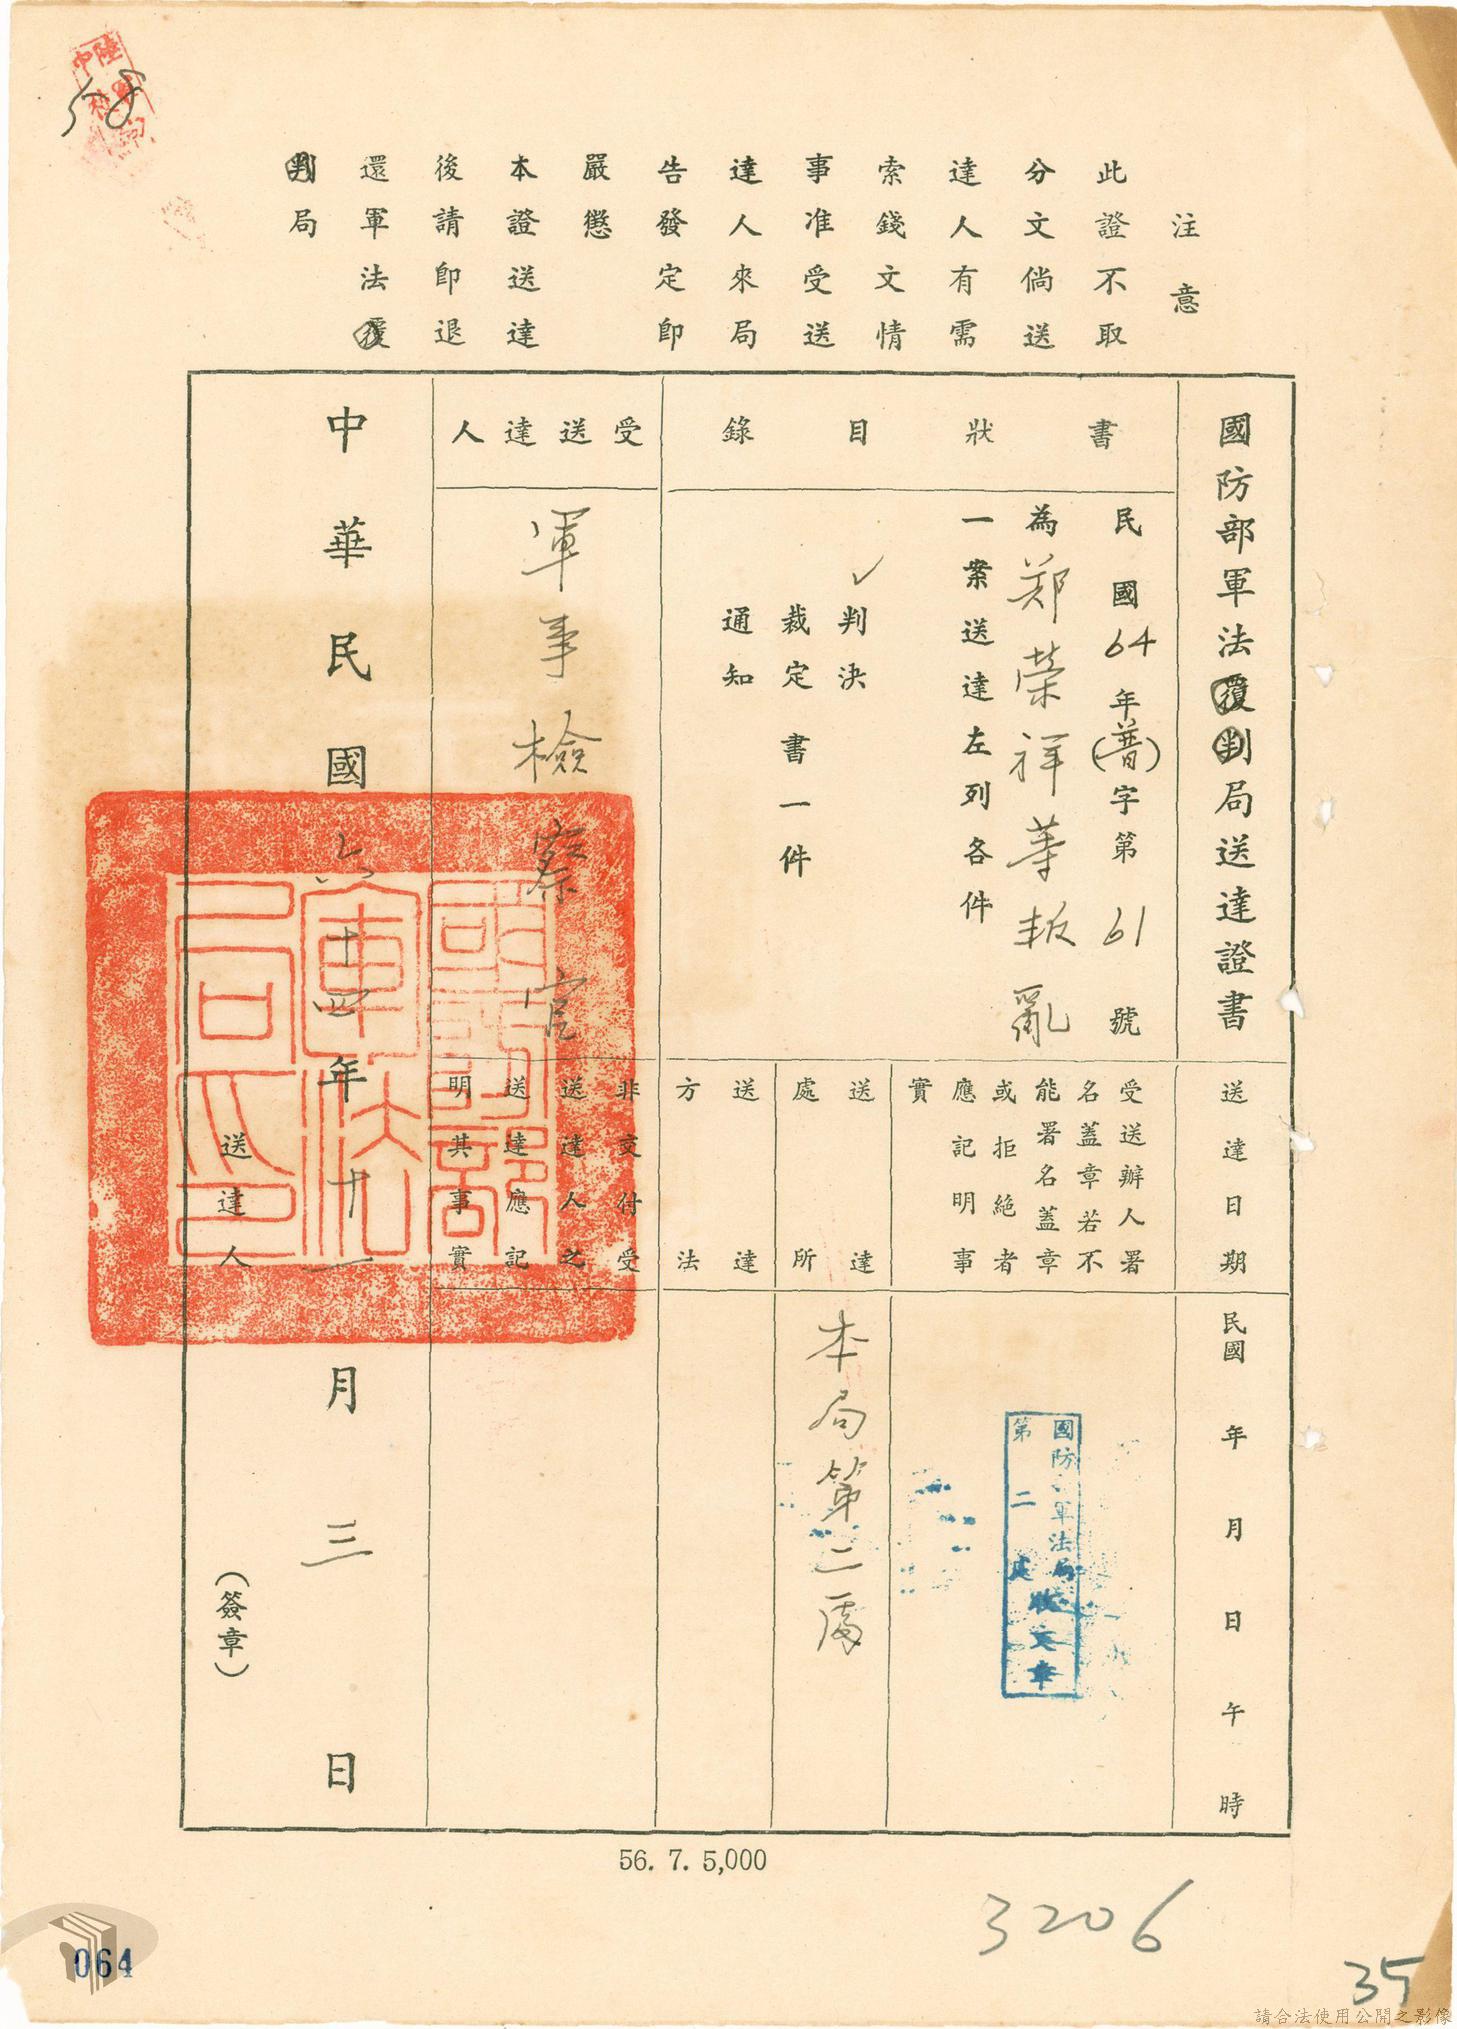 58
注意
此證不取
分文倘送
達人有需
索錢文情
事准受送
達人來局
告發定即
嚴懲
本證送達
後請即退
還軍法覆
判局
國防部軍法覆判局送達證書
書狀目錄
民國64年(普)字第61號
為鄭榮祥等叛亂
一案送達左列各件
✓判決
裁定書一件
通知
受送達人
軍事檢察官
送達日期
民國 年 月 日 午 時
受送辦人署
名蓋章若不
能署名蓋章
或拒絕者
應記明事
實
國防部軍法局
第二處
收文章
送達處所
本局第二處
送達方法
非交付受
送達人之
送達應記
明其事實
中華民國六十四年十一月三日
國防部
軍法
局印
送達人
(簽章)
56. 7. 5,000
3206
35
064
請合法使用公開之影像